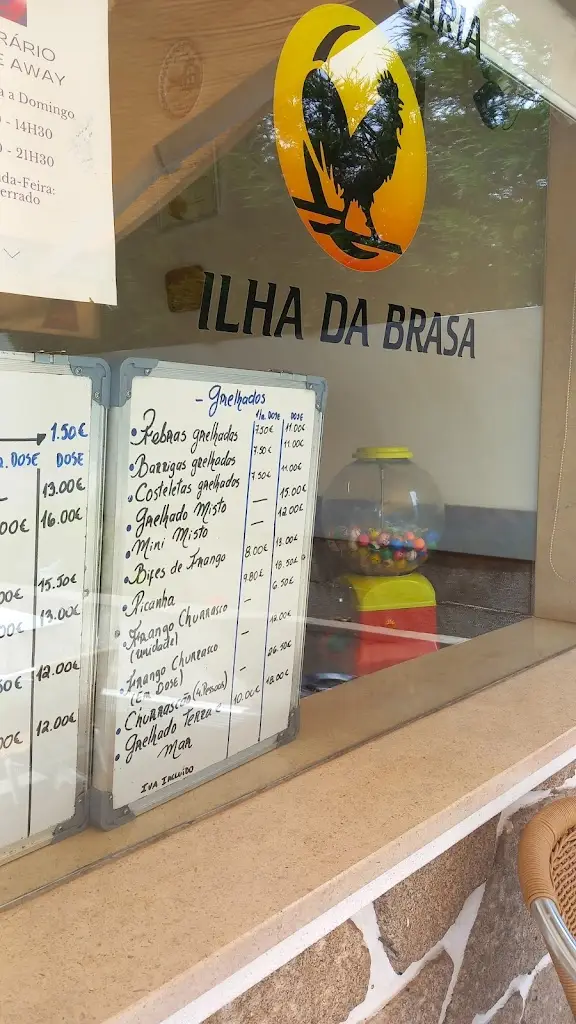 RÁRIO
E AWAY
a a Domingo
- 14H30
- 21H30
da-Feira:
errado
CARIA
ILHA DA BRASA
1.50€
DOSE DOSE
13.00€
00€ 16.00€
15.50€
00€ 13.00€
50€ 12.00€
00€ 12.00€
- Grelhados
1/2. DOSE DOSE
• Febras grelhadas 7.50€ 11.00€
• Barrigas grelhadas 7.50€ 11.00€
• Costeletas grelhadas 7.50€ 11.00€
• Grelhado Misto — 15.00€
• Mini Misto — 12.00€
• Bifes de Frango 8.00€ 13.00€
• Picanha 9.80€ 18.50€
• Frango Churrasco — 6.50€
(unidade)
• Frango Churrasco — 12.00€
(Em Dose)
• Churrascão (4 Pessoas) — 26.50€
• Grelhado Terra e 10.00€ 18.00€
Mar
IVA Incluido